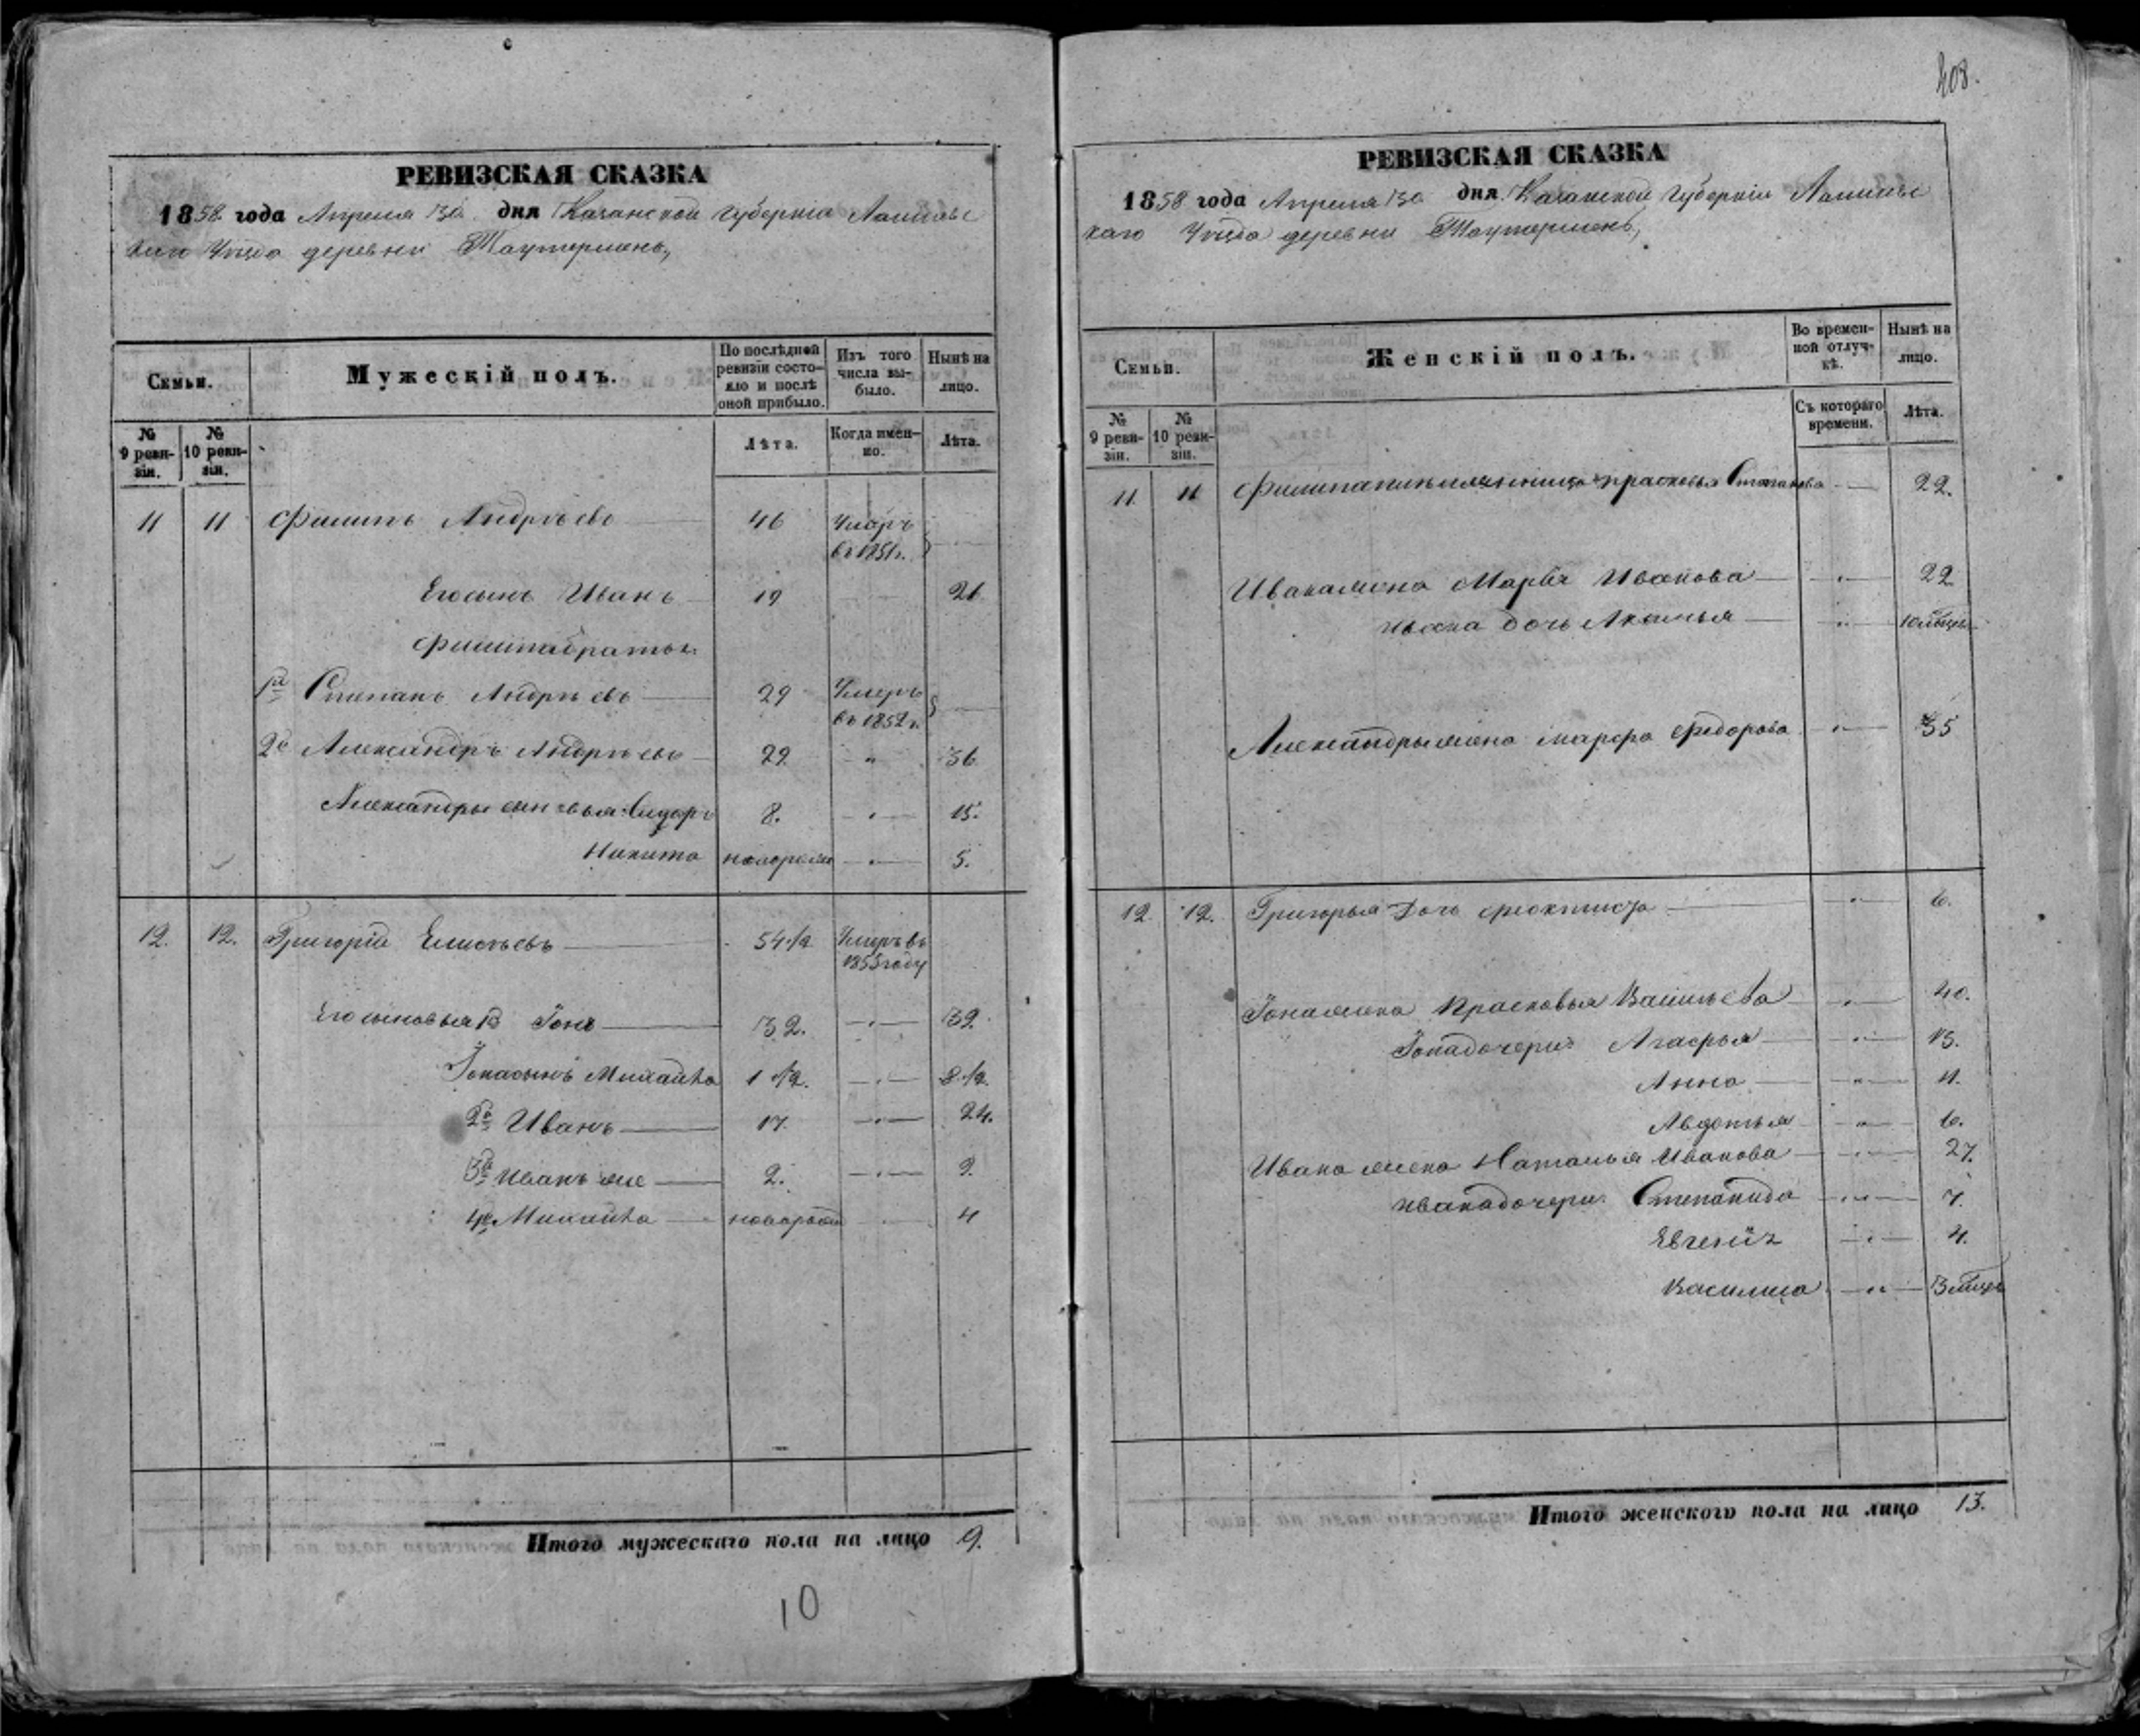 РЕВИЗСКАЯ СКАЗКА
1858 года Апреля 30 дня Казанской губернии Лаишевс
каго Уѣзда деревни Таутермень,
Семьи.
Мужескій полъ.
По послѣдней ревизіи состояло и послѣ оной прибыло.
Изъ того числа выбыло.
Нынѣ на лицо.
№ 9 ревизіи.
№ 10 ревизіи.
Лѣта.
Когда именно.
Лѣта.
11 11 Филипъ Андрѣевъ 46 Умеръ въ 1851 г.
Его сынъ Иванъ 19 26
Филипа братья
1й Степанъ Андрѣевъ 29 Умеръ въ 1852 г.
2й Александръ Андрѣевъ 29 " 36
Александры сыновья 8. " 15.
Никита новорож " 5.
12. 12. Григорій Елисѣевъ 54 1/2 Умеръ въ 1855 году
Его сыновья 1й Іона 32. " 39
Іонасынъ Михайла 1 1/2. " 8 1/2.
2й Иванъ 17. " 24.
3й Иванъ же 2. " 9.
4й Михайла новорож " 4
Итого мужескаго пола на лицо 9.
10
208.
РЕВИЗСКАЯ СКАЗКА
1858 года Апреля 30 дня Казанской губернии Лаишевс
каго Уѣзда деревни Таутермень,
Семьи.
Женскій полъ.
Во временной отлучкѣ.
Нынѣ на лицо.
№ 9 ревизіи.
№ 10 ревизіи.
Съ котораго времени.
Лѣта.
11 11 Прасковья Степанова 22.
Ивана жена Марья Иванова " 22
Ивана дочь Акулина " 10 мѣсяц
Александры жена Марфа Федорова " 35
12. 12. Григорья дочь Феоктиста " 6.
Іона жена Прасковья Васильева " 40.
Іона дочери Агафья " 13.
Анна " 11.
Авдотья " 6.
Ивана жена Наталья Иванова " 27.
Ивана дочери Степанида " 7.
Евгенія " 4.
Василиса " 3 мѣсяц
Итого женскаго пола на лицо 13.